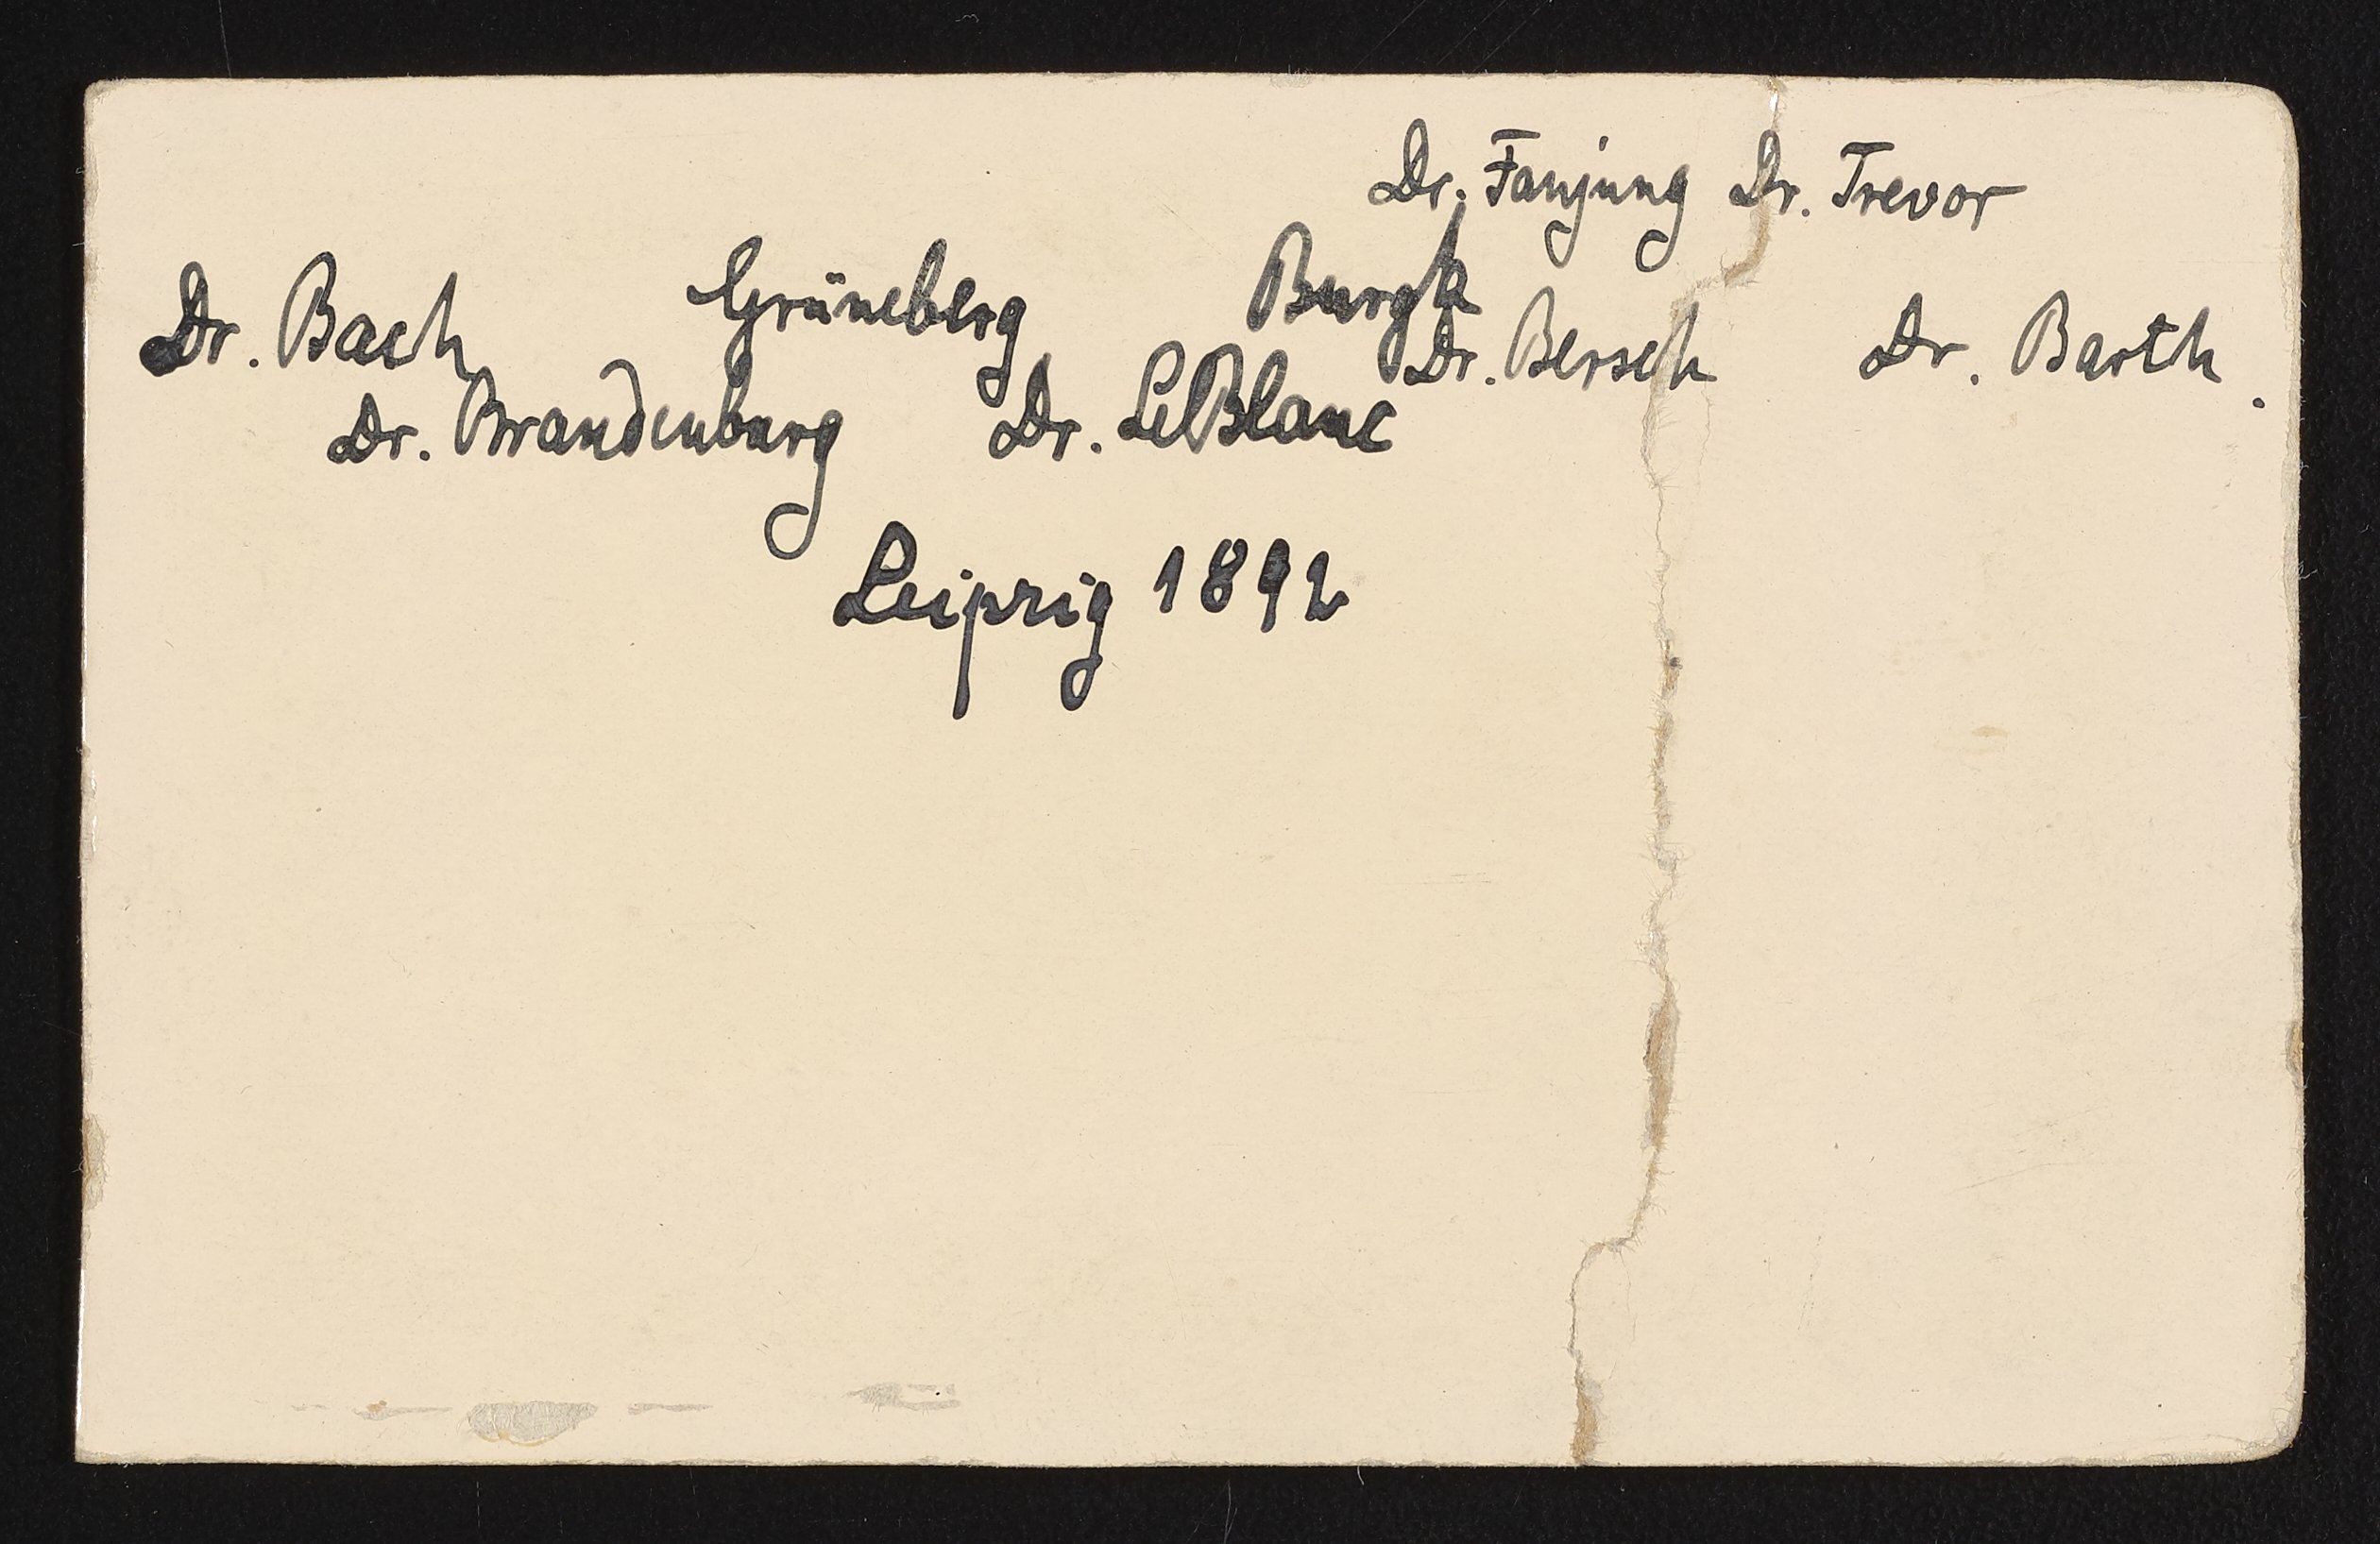 Dr. Fanjung Dr. Trevor
Dr. Bach Grüneberg Burgk Dr. Bersch Dr. Barth.
Dr. Brandenburg Dr. LeBlanc
Leipzig 1892